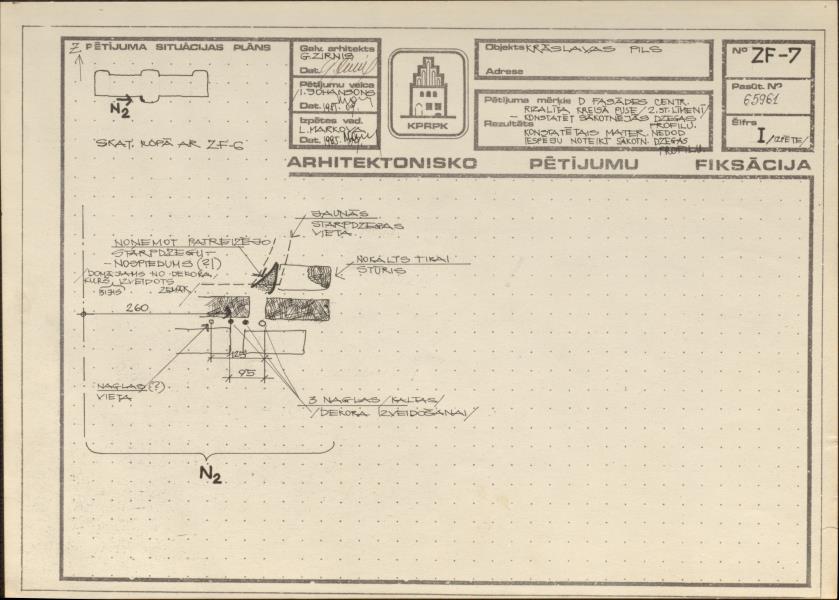 Z PĒTĪJUMA SITUĀCIJAS PLĀNS
N2
SKAT. KOPĀ AR ZF-6
Galv. arhitekts
G. ZIRNIS
Dat.
Pētījumu veica
I. JOHANSONS
Dat. 1985. 09.
Izpētes vad.
L. MARKOVA
Dat. 1985.
KPRPK
Objekts KRĀSLAVAS PILS
Adrese
Pētījuma mērķis D FASĀDES CENTR.
RIZALĪTA KREISĀ PUSE / 2. ST. LĪMENĪ /
- KONSTATĒT SĀKOTNĒJĀS DZEGAS
PROFILU.
Rezultāts
KONSTATĒTAIS MATER. NEDOD
IESPĒJU NOTEIKT SĀKOTN. DZEGAS
PROFILU.
No ZF-7
Pasūt. No
65961
Šifrs
I /IZPĒTE/
ARHITEKTONISKO PĒTĪJUMU FIKSĀCIJA
JAUNĀS
STARPDZEGAS
VIETA
NOŅEMOT PATREIZĒJO
STARPDZEGU -
- NOSPIEDUMS (?)
/DOMĀJAMS NO DEKORA,
KURŠ IZVEIDOTS
BIJIS ZEMĀK
NOKALTS TIKAI
STŪRIS
260
125
95
NAGLAS (?)
VIETA
3 NAGLAS /KALTAS/
/DEKORA IZVEIDOŠANAI/
N2